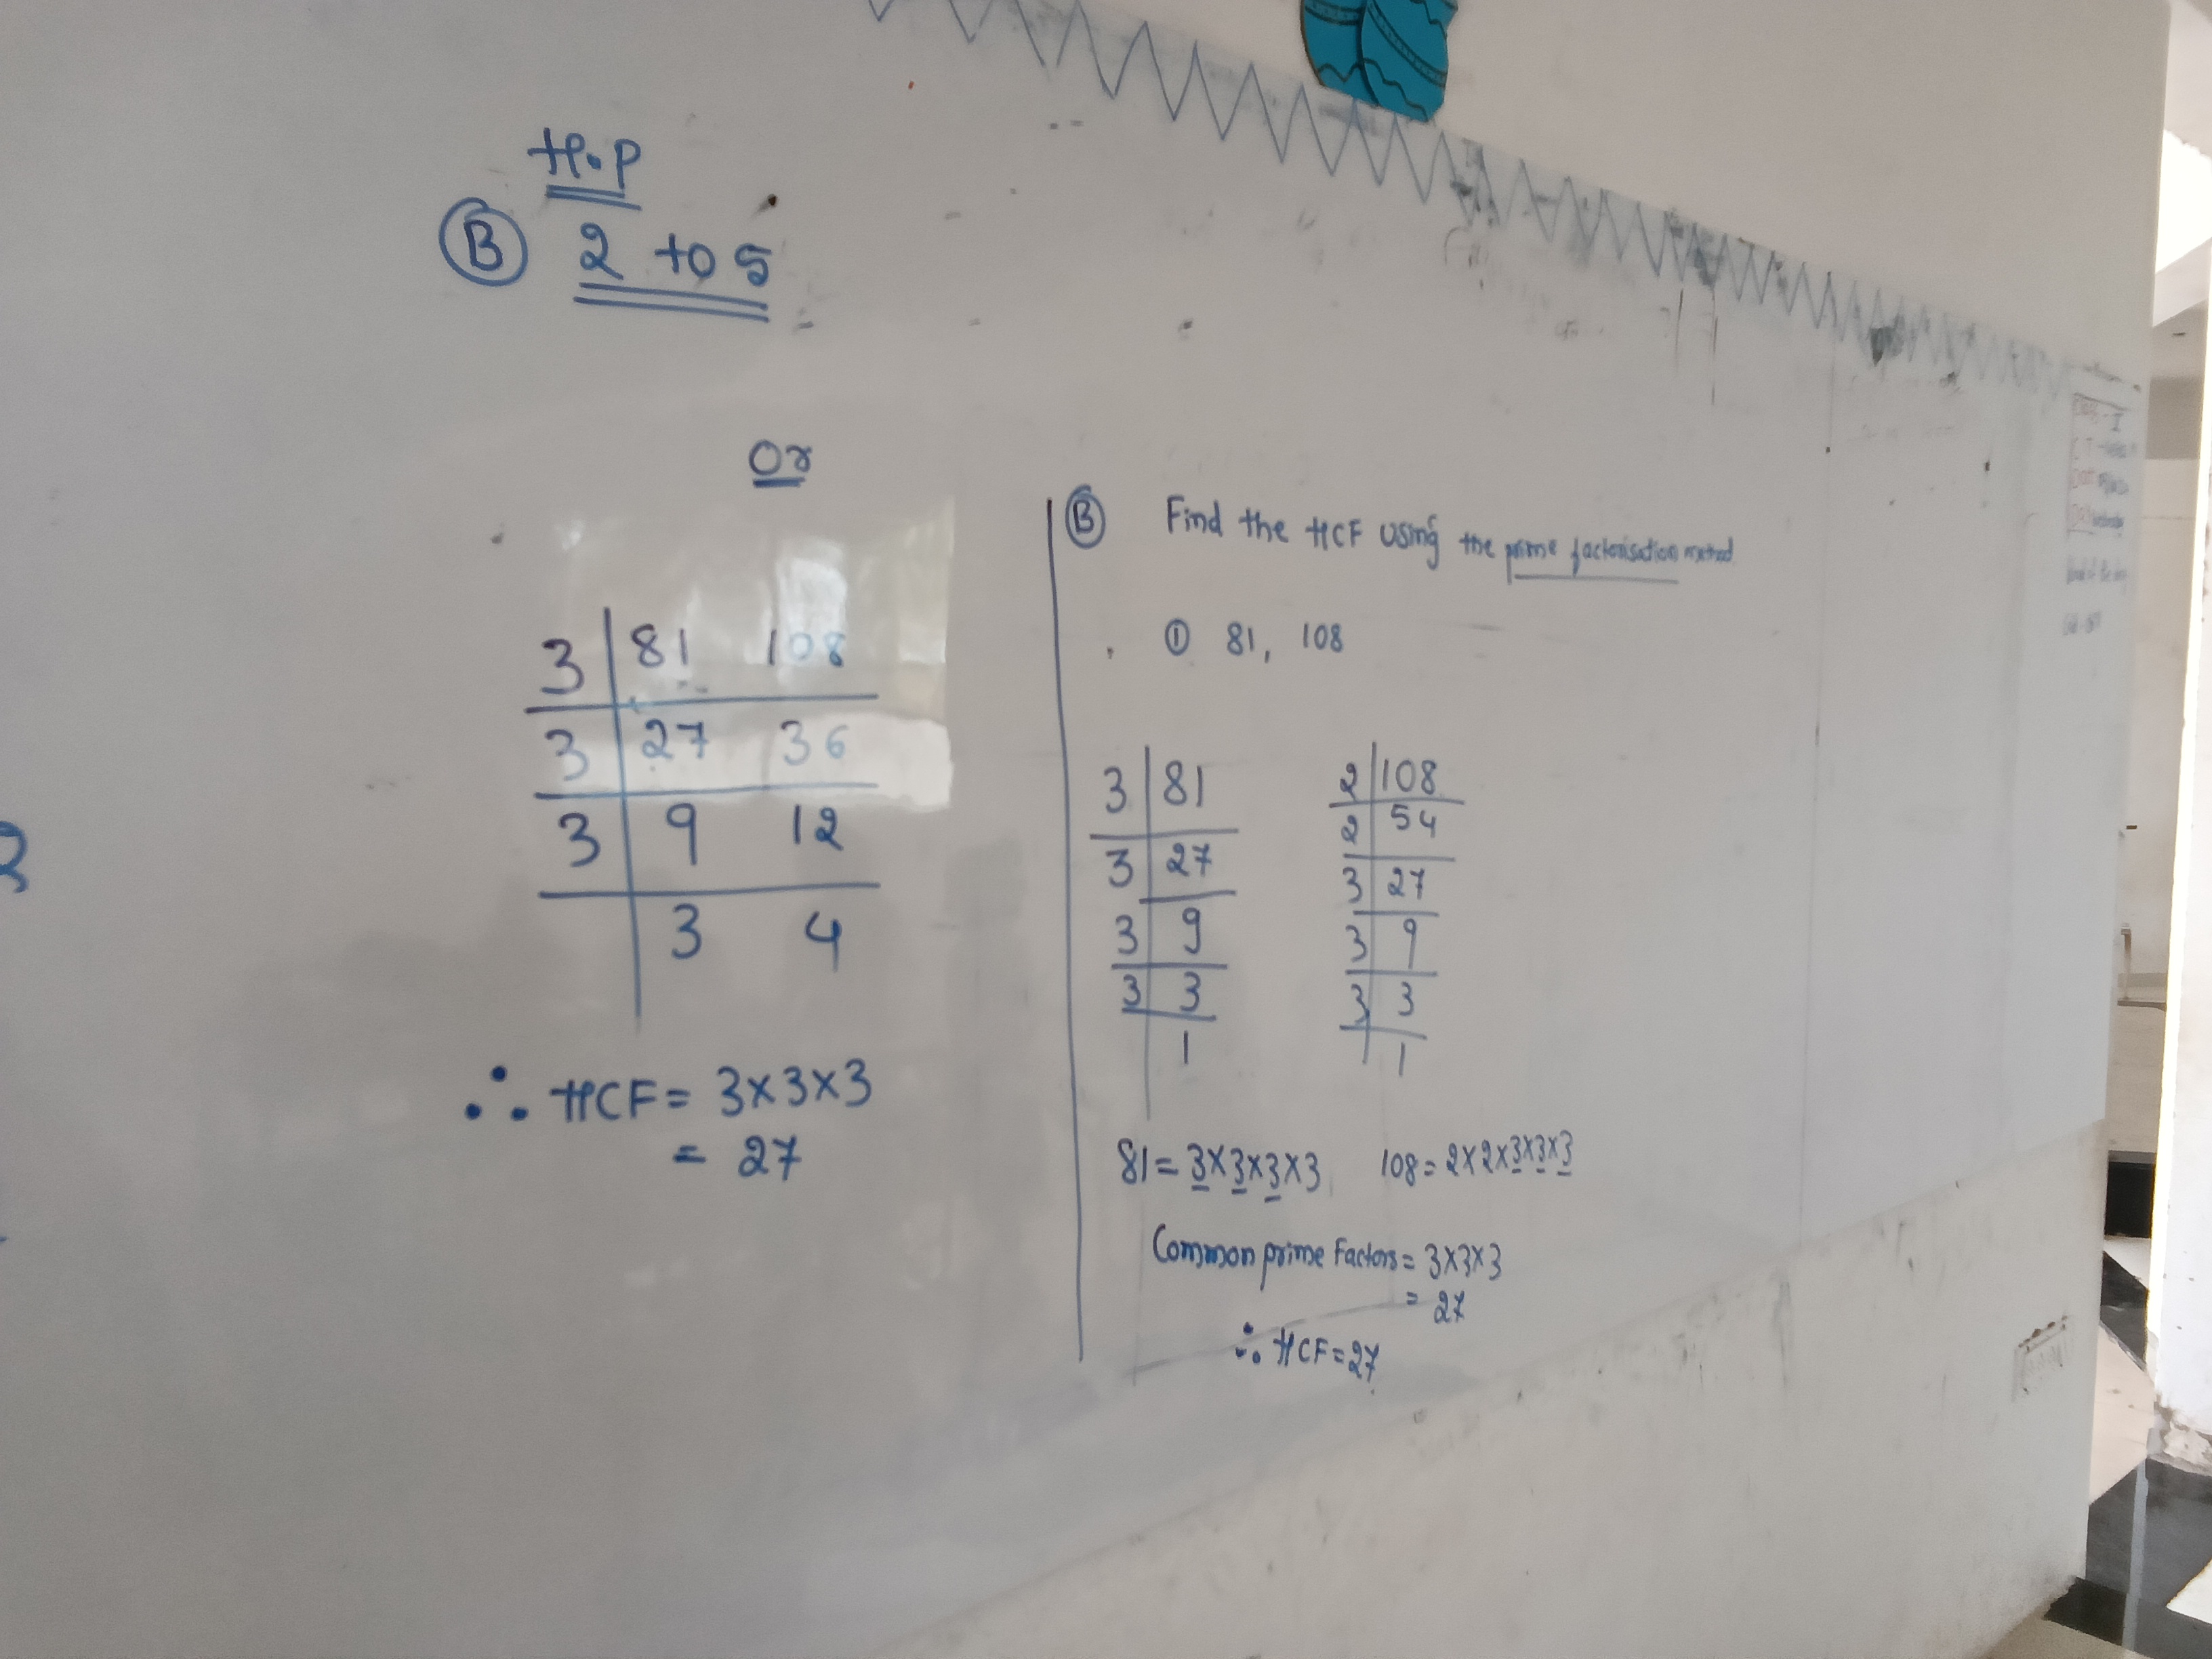 H.P
Ⓑ 2 to 5
Or
3 | 81 108
3 | 27 36
3 | 9 12
3 4
∴ HCF = 3×3×3
= 27
Ⓑ Find the HCF using the prime factorisation method
① 81, 108
3 | 81
3 | 27
3 | 9
3 | 3
1
2 | 108
2 | 54
3 | 27
3 | 9
3 | 3
1
81 = 3×3×3×3 108 = 2×2×3×3×3
Common prime Factors = 3×3×3
= 27
∴ HCF = 27